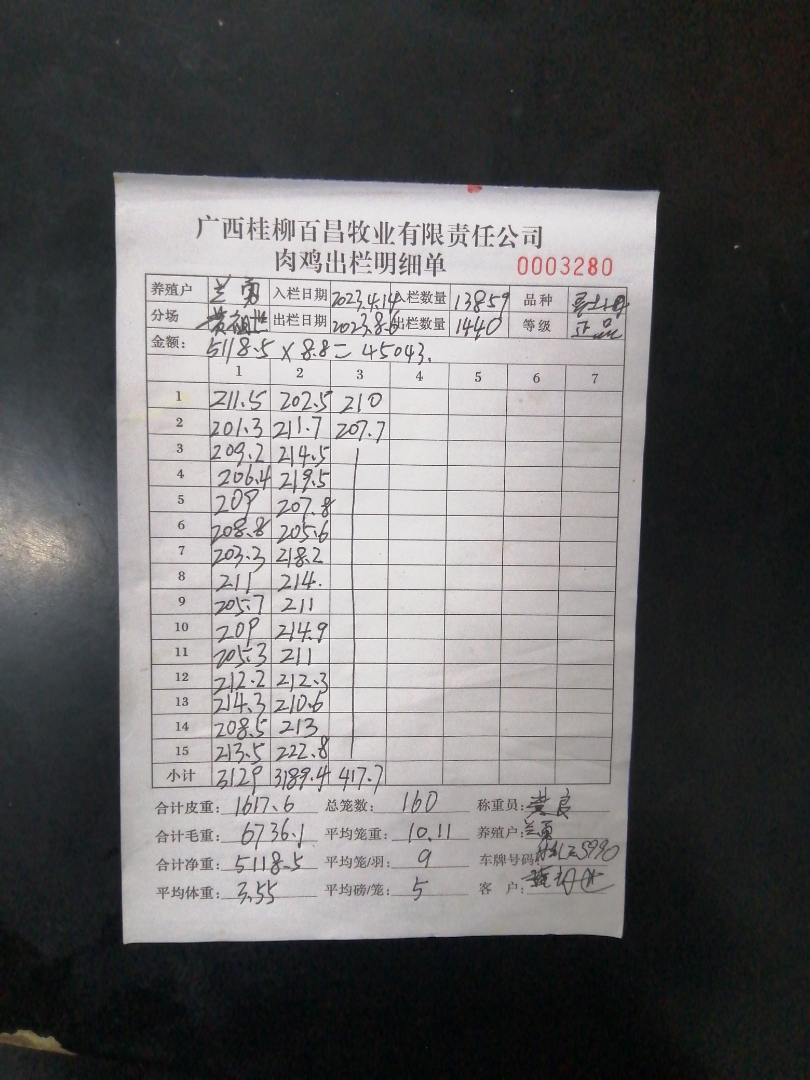 广西桂柳百昌牧业有限责任公司
肉鸡出栏明细单 0003280
养殖户 兰勇 入栏日期 2023.4.14 入栏数量 13859 品种
分场 出栏日期 2023.8.6 出栏数量 1440 等级 正品
金额: 5118.5 × 8.8 = 45043.
1 2 3 4 5 6 7
1 211.5 202.5 210
2 201.3 211.7 207.7
3 209.2 214.5
4 206.4 219.5
5 209 207.8
6 208.8 205.6
7 203.3 218.2
8 211 214.
9 205.7 211
10 209 214.9
11 205.3 211
12 212.2 212.3
13 214.3 210.6
14 208.5 213
15 213.5 222.8
小计 3129 3189.4 417.7
合计皮重: 1617.6 总笼数: 160 称重员: 黄良
合计毛重: 6736.1 平均笼重: 10.11 养殖户: 兰勇
合计净重: 5118.5 平均笼/羽: 9 车牌号码: 5990
平均体重: 3.55 平均磅/笼: 5 客户: